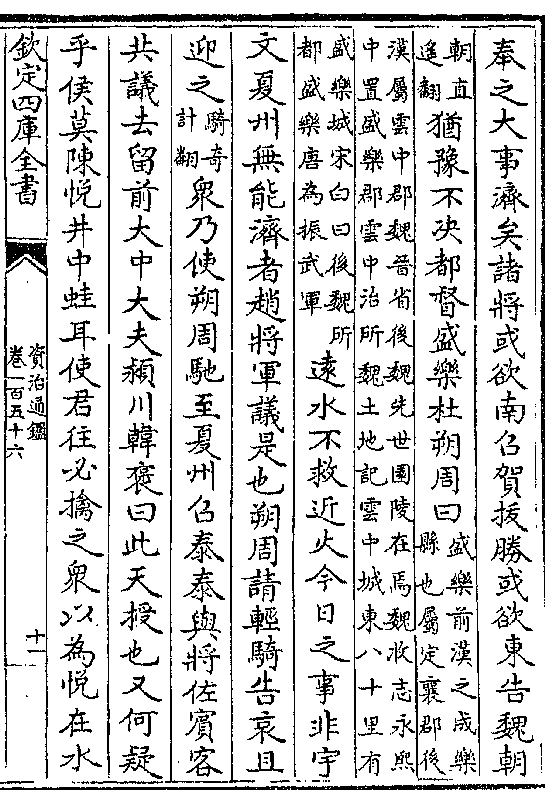 奉之大事濟矣諸將或欲南召賀拔勝或欲東告魏朝
朝直遥翻猶豫不决都督盛樂杜朔周曰盛樂前漢之成樂縣也屬定襄郡後
漢屬雲中郡魏晉省後魏先世園陵在焉魏收志永熙
中置盛樂郡雲中治所魏土地記雲中城東八十里有
盛樂城宋白曰後魏所都盛樂唐為振武軍遠水不救近火今日之事非宇
文夏州無能濟者趙將軍議是也朔周請輕騎告哀且
迎之騎奇計翻衆乃使朔周馳至夏州召泰泰與將佐賓客
共議去留前大中大夫潁川韓褒曰此天授也又何疑
乎侯莫陳悦井中蛙耳使君往必擒之衆以為悦在水
欽定四庫全書
資治通鑑
卷一百五十六
十一